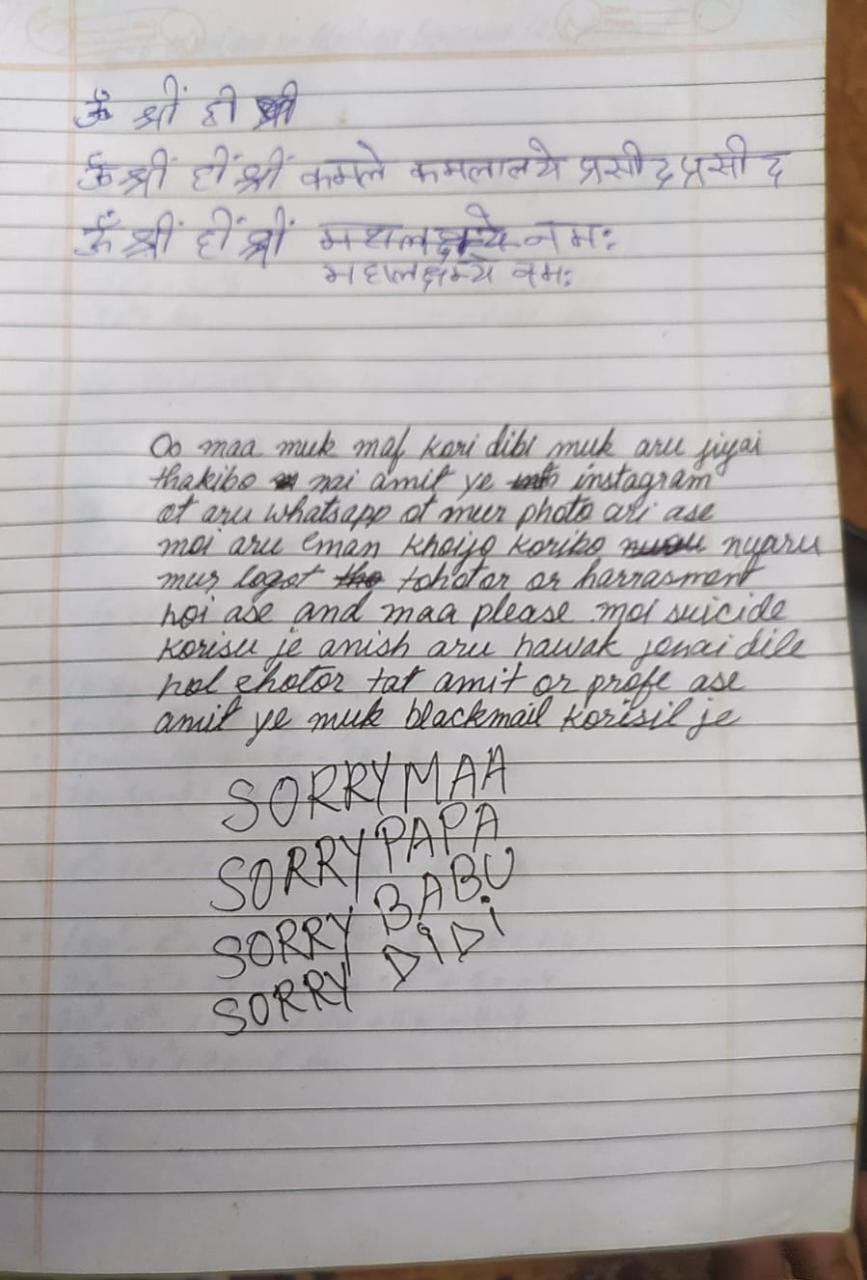 ॐ श्रीं ही
ॐ श्रीं हीं श्रीं कमले कमलालये प्रसीद प्रसीद
ॐ श्रीं हीं श्रीं नमः
महालक्षम्ये नमः
Oo maa muk maf kori dibi muk aru jiyai
thakibo nai amit ye instagram
ot aru whatsapp ot mur photo ari ase
moi aru eman khoijo koribo nuaru
mur logot tohotor or harrasment
hoi ase and maa please moi suicide
korisu je anish aru nawak jonai dile
hol ehotor tat amit or profe ase
amit ye muk blackmail korisil je
SORRY MAA
SORRY PAPA
SORRY BABU
SORRY DIDI